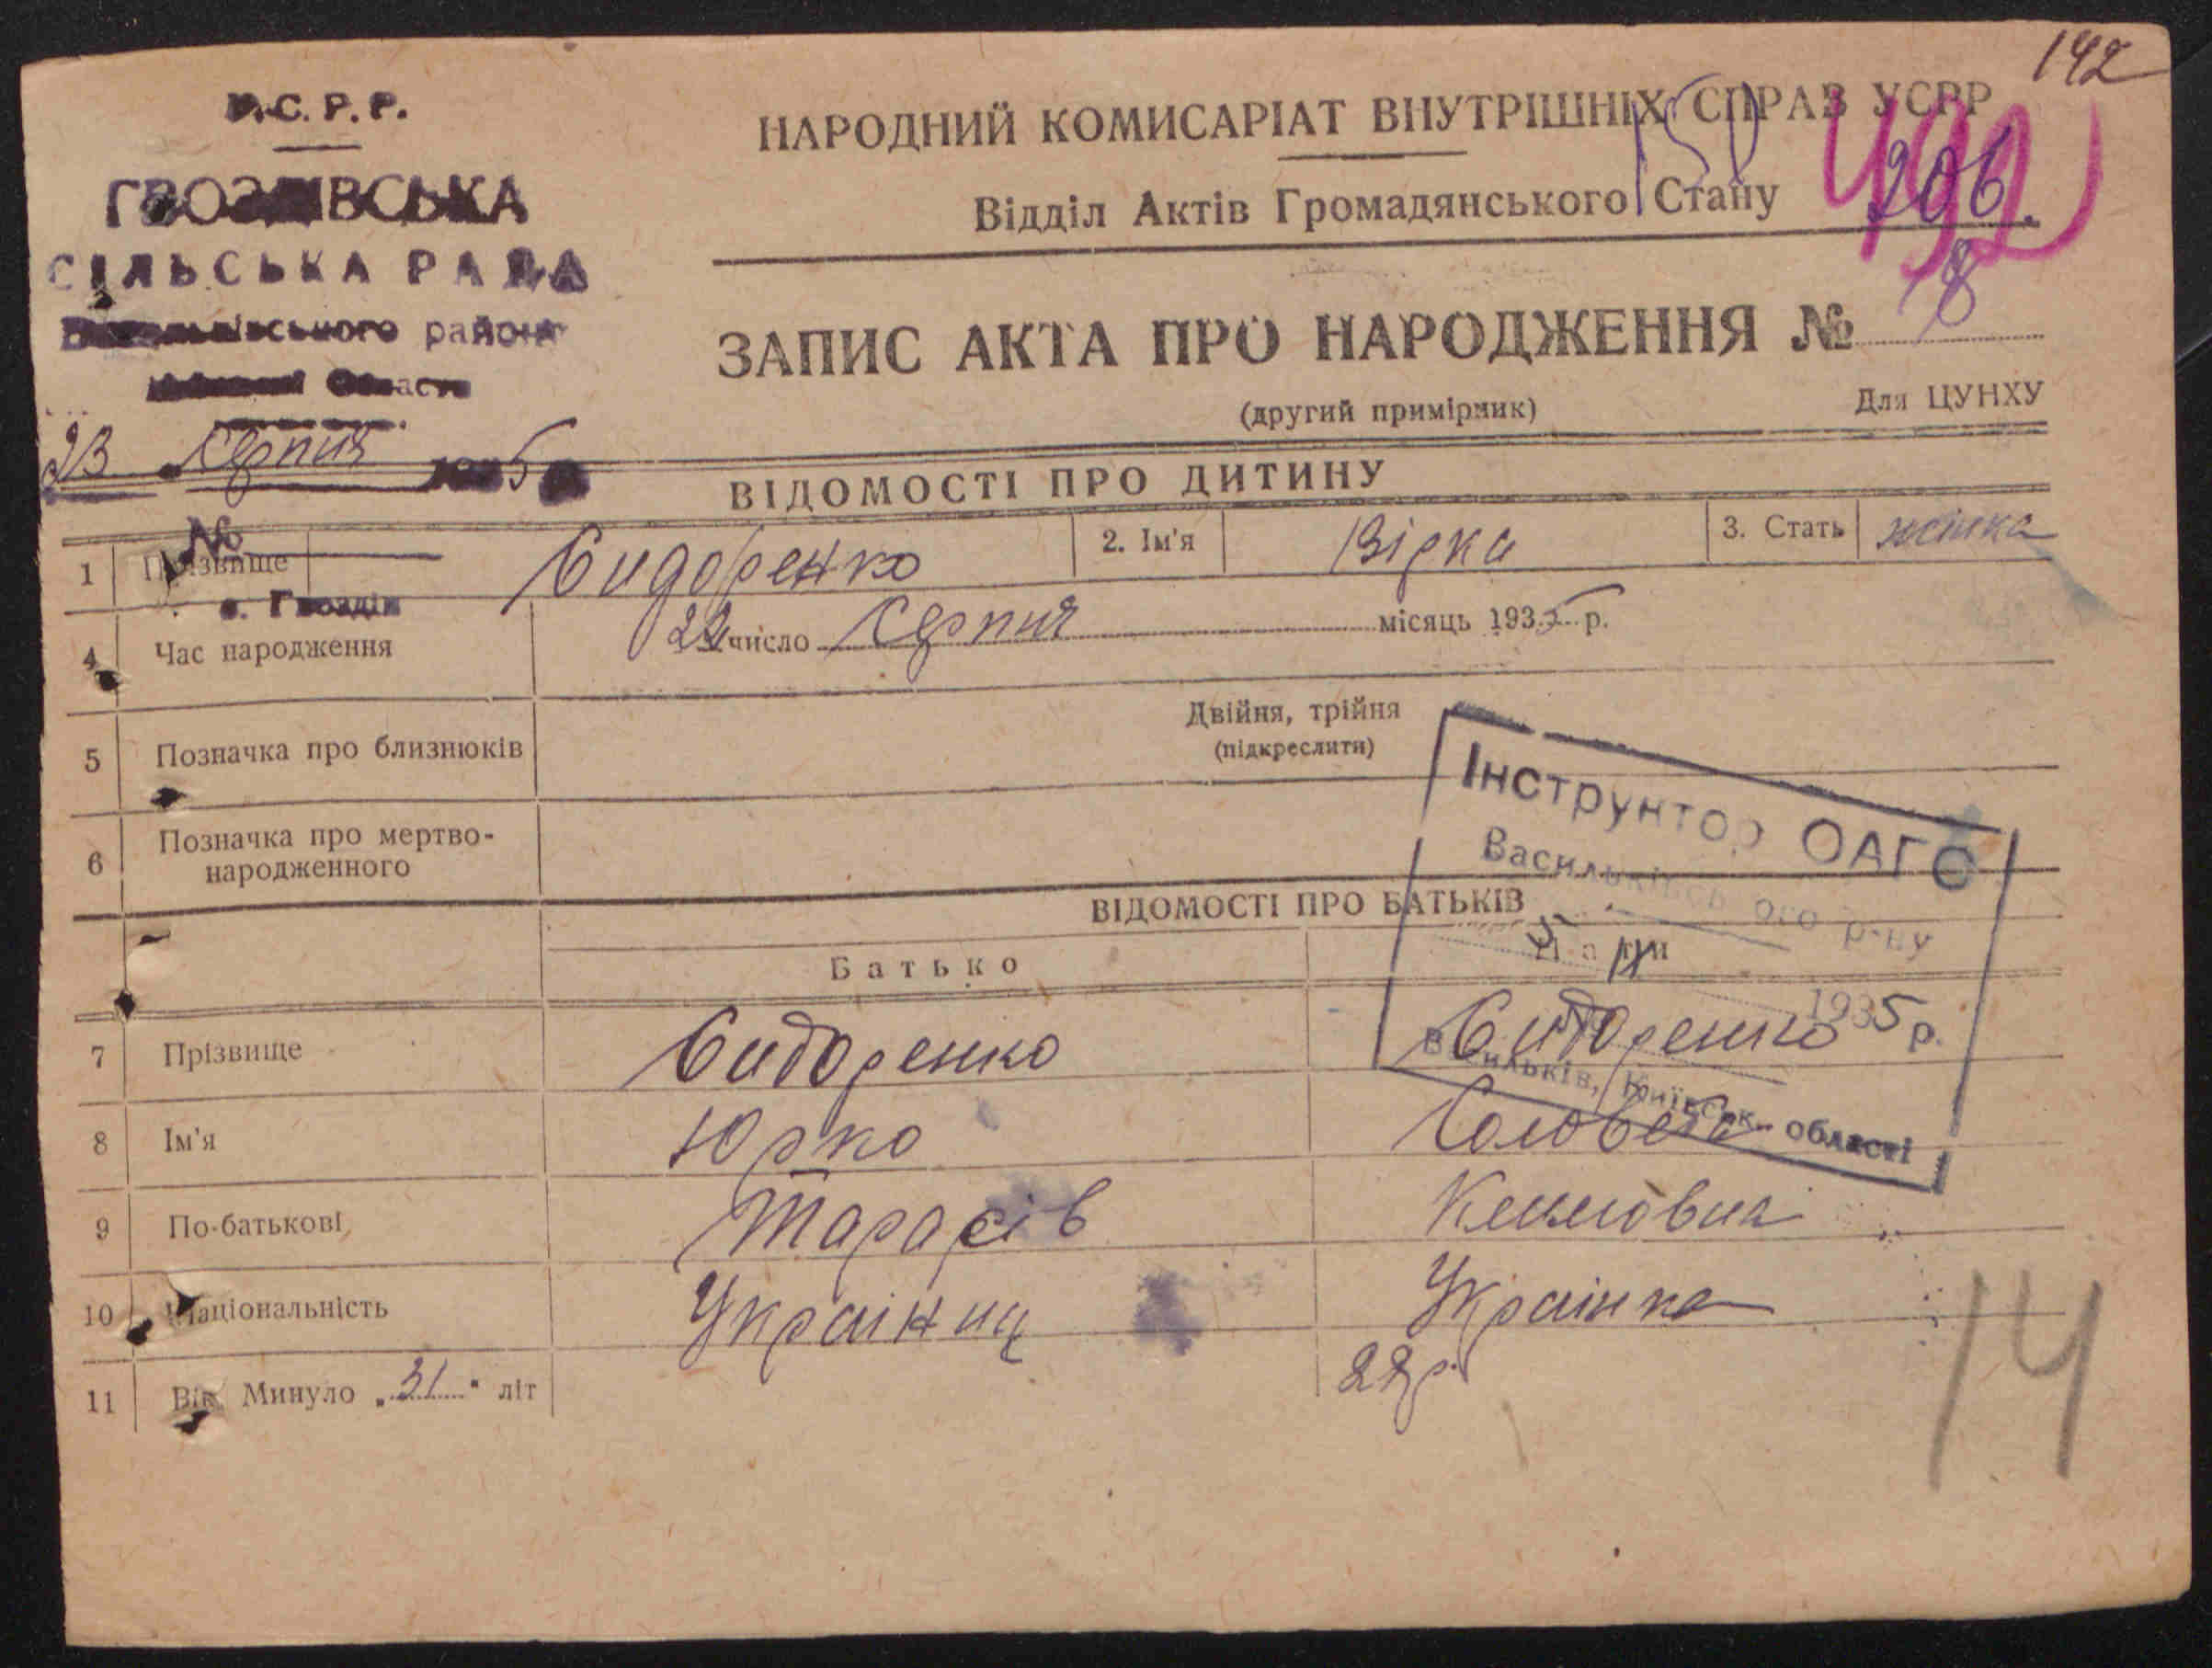 У.С.Р.Р.
ГВОЗДІВСЬКА
СІЛЬСЬКА РАДА
Васильківського району
Київської Області
23 серпня 1935 р.
№
с. Гвоздів
142
НАРОДНИЙ КОМИСАРІАТ ВНУТРІШНІХ СПРАВ УСРР
Відділ Актів Громадянського Стану
150
192
206
ЗАПИС АКТА ПРО НАРОДЖЕННЯ № 78
(другий примірник)
Для ЦУНХУ
ВІДОМОСТІ ПРО ДИТИНУ
1 Прізвище Сидоренко 2. Ім'я Вірка 3. Стать жінка
4 Час народження 22 число Серпня місяць 1935 р.
5 Позначка про близнюків Двійня, трійня
(підкреслити)
6 Позначка про мертво-
народженного
Інструктор ОАГС
Васильківського р-ну
5 11
1935 р.
Васильків, Київськ. області
ВІДОМОСТІ ПРО БАТЬКІВ
Батько Мати
7 Прізвище Сидоренко Сидоренко
8 Ім'я Юрко
9 По-батькові Тарасів
10 Національність Україниц Українка
11 Вік. Минуло „31" літ 22р.
14